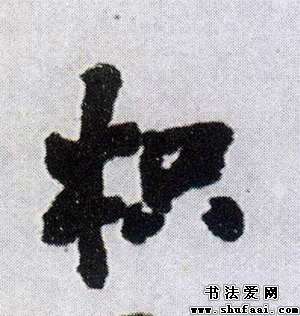 枳
书法爱网
www.shufaai.com